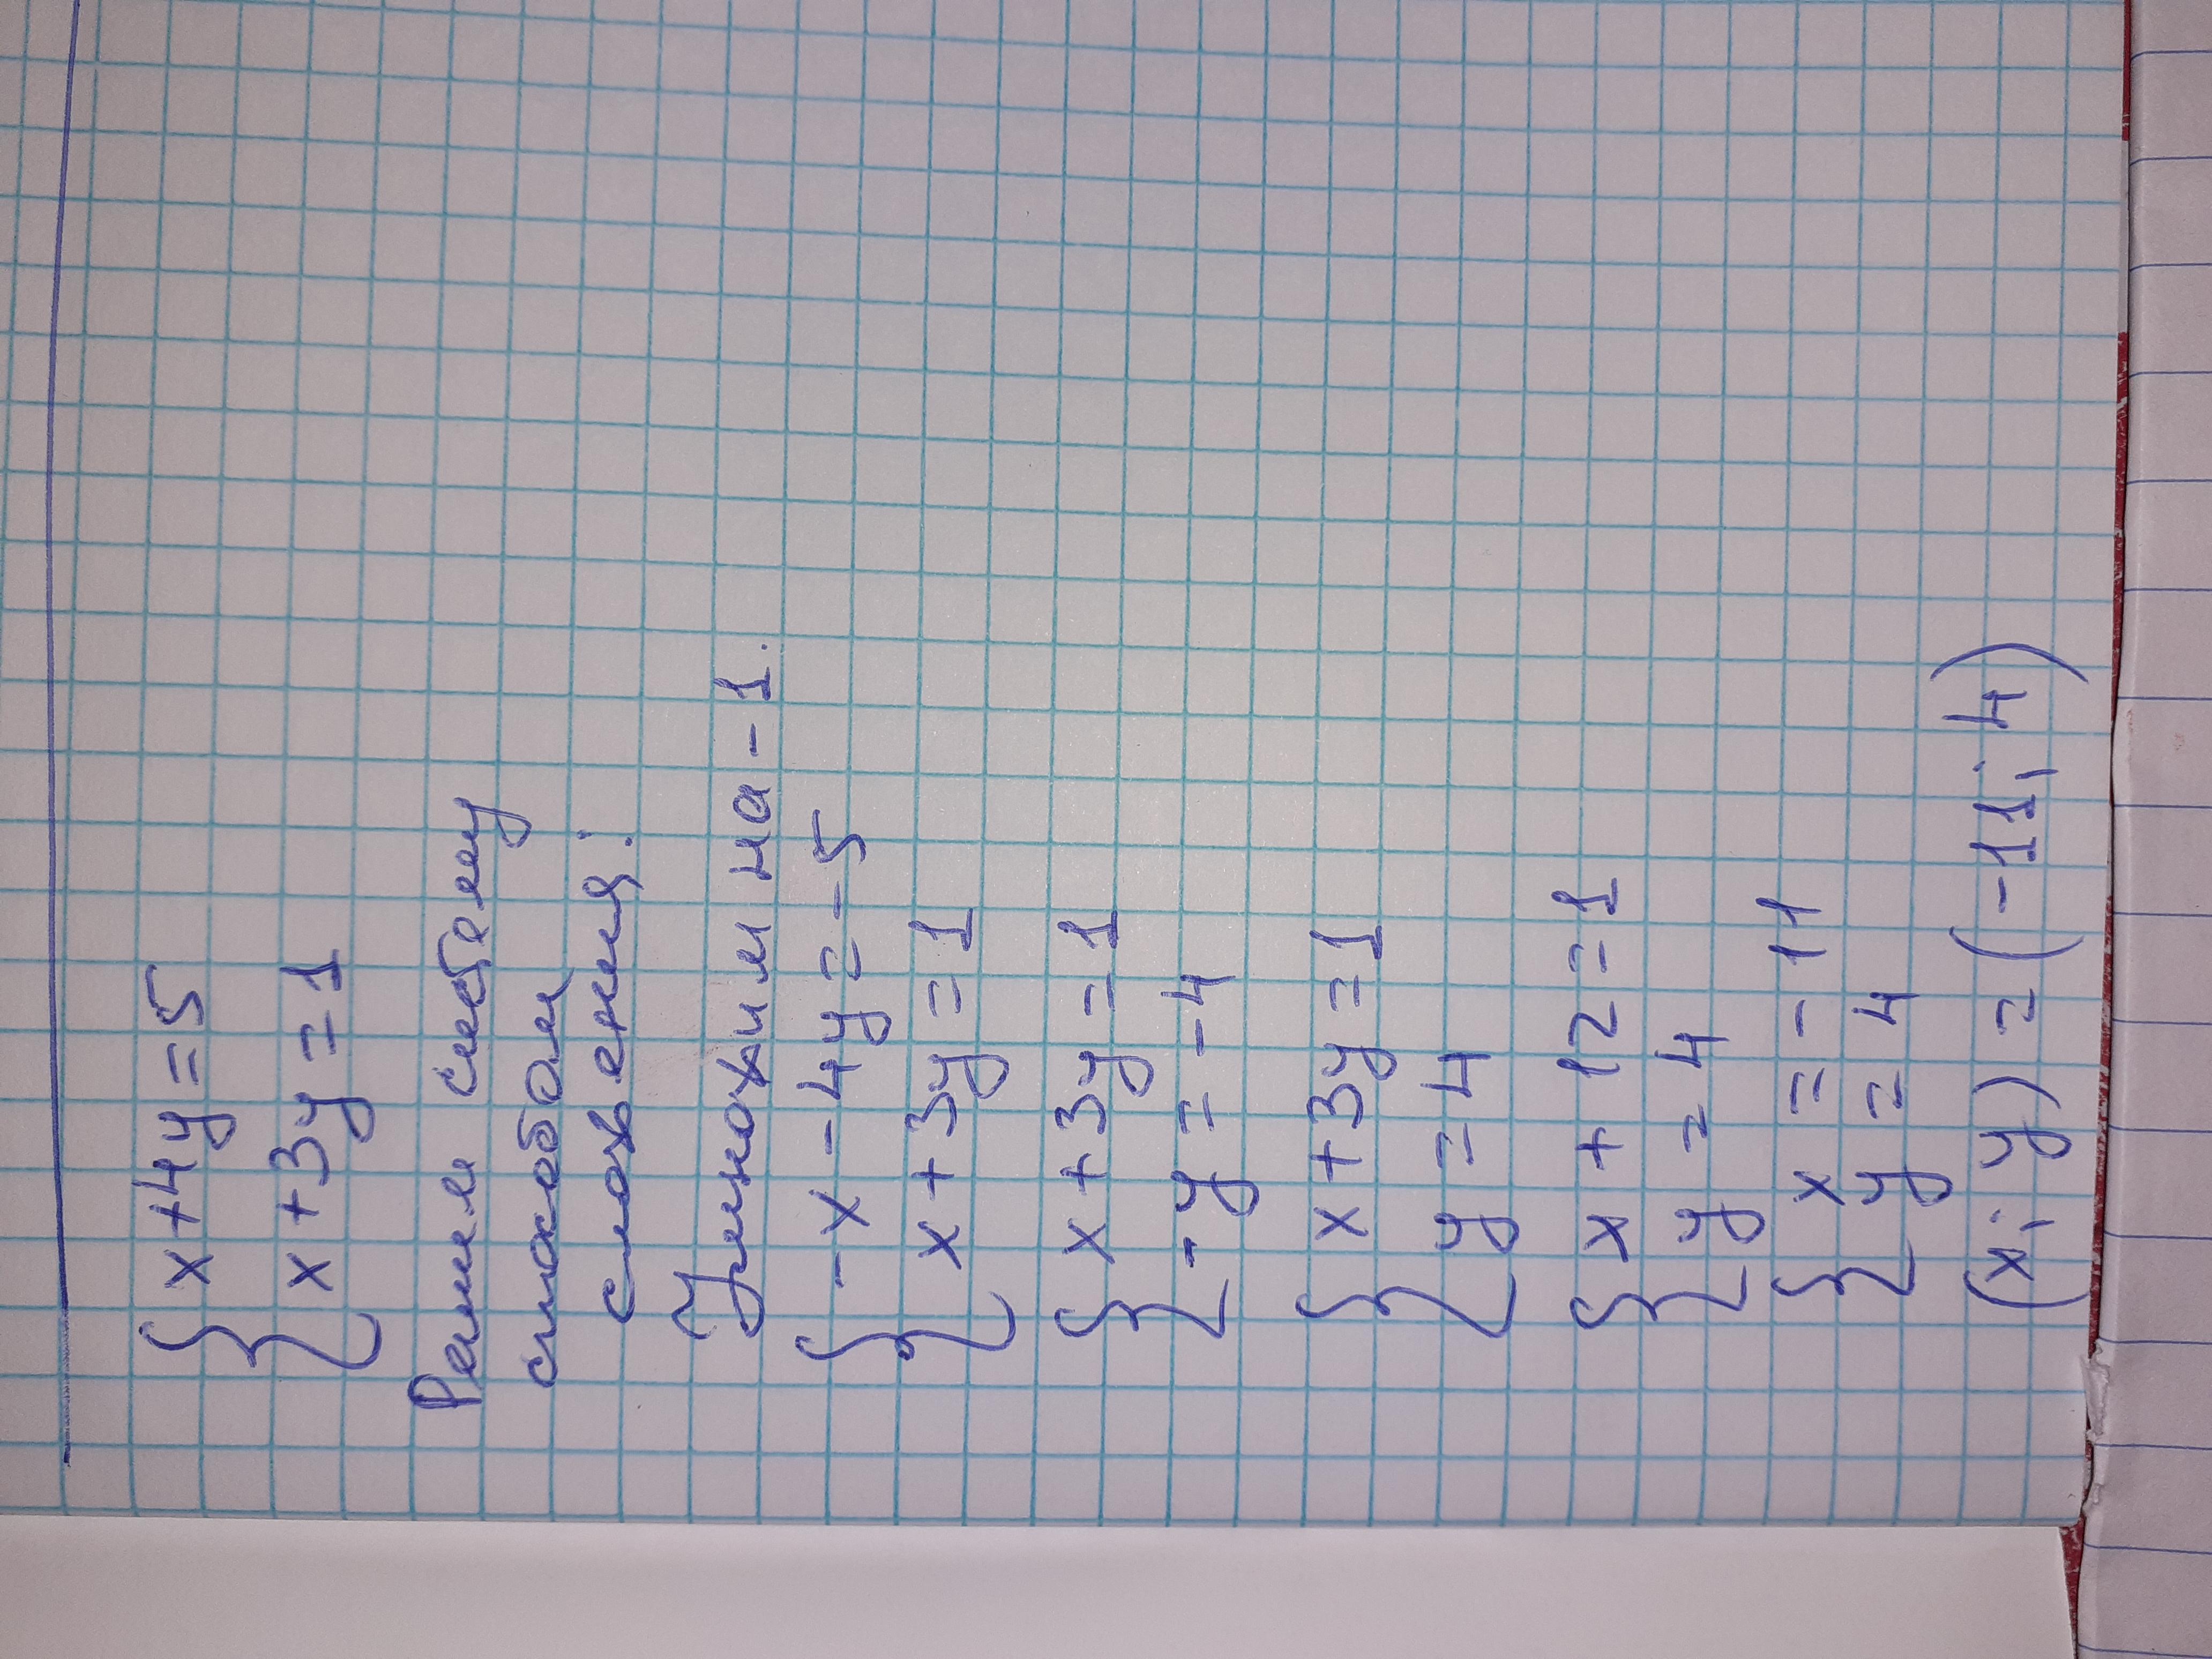 { x+4y=5
{ x+3y=1
Решим систему
способом
сложения:
Умножим на -1.
{ -x-4y=-5
{ x+3y=1
{ x+3y=1
{ -y=-4
{ x+3y=1
{ y=4
{ x+12=1
{ y=4
{ x=-11
{ y=4
(x; y)=(-11; 4)